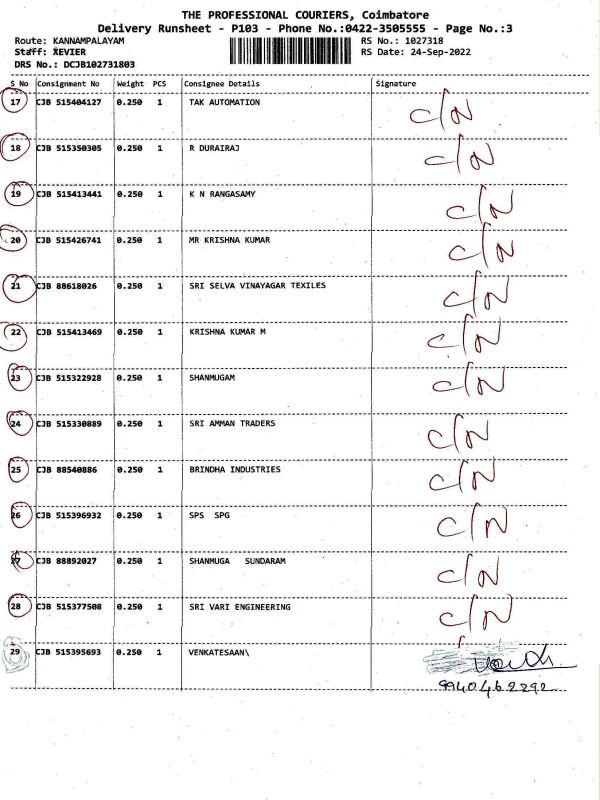 THE PROFESSIONAL COURIERS, Coimbatore
Delivery Runsheet - P103 - Phone No.:0422-3505555 - Page No.:3
Route: KANNAMPALAYAM RS No.: 1027318
Staff: XEVIER RS Date: 24-Sep-2022
DRS No.: DCJB102731803
S No Consignment No Weight PCS Consignee Details Signature
17 CJB 515404127 0.250 1 TAK AUTOMATION C/N
18 CJB 515350305 0.250 1 R DURAIRAJ C/N
19 CJB 515413441 0.250 1 K N RANGASAMY C/N
20 CJB 515426741 0.250 1 MR KRISHNA KUMAR C/N
21 CJB 88618026 0.250 1 SRI SELVA VINAYAGAR TEXILES C/N
22 CJB 515413469 0.250 1 KRISHNA KUMAR M C/N
23 CJB 515322928 0.250 1 SHANMUGAM C/N
24 CJB 515330889 0.250 1 SRI AMMAN TRADERS C/N
25 CJB 88540886 0.250 1 BRINDHA INDUSTRIES C/N
26 CJB 515396932 0.250 1 SPS SPG C/N
27 CJB 88892027 0.250 1 SHANMUGA SUNDARAM C/N
28 CJB 515377508 0.250 1 SRI VARI ENGINEERING C/N
29 CJB 515395693 0.250 1 VENKATESAAN\
9940462292